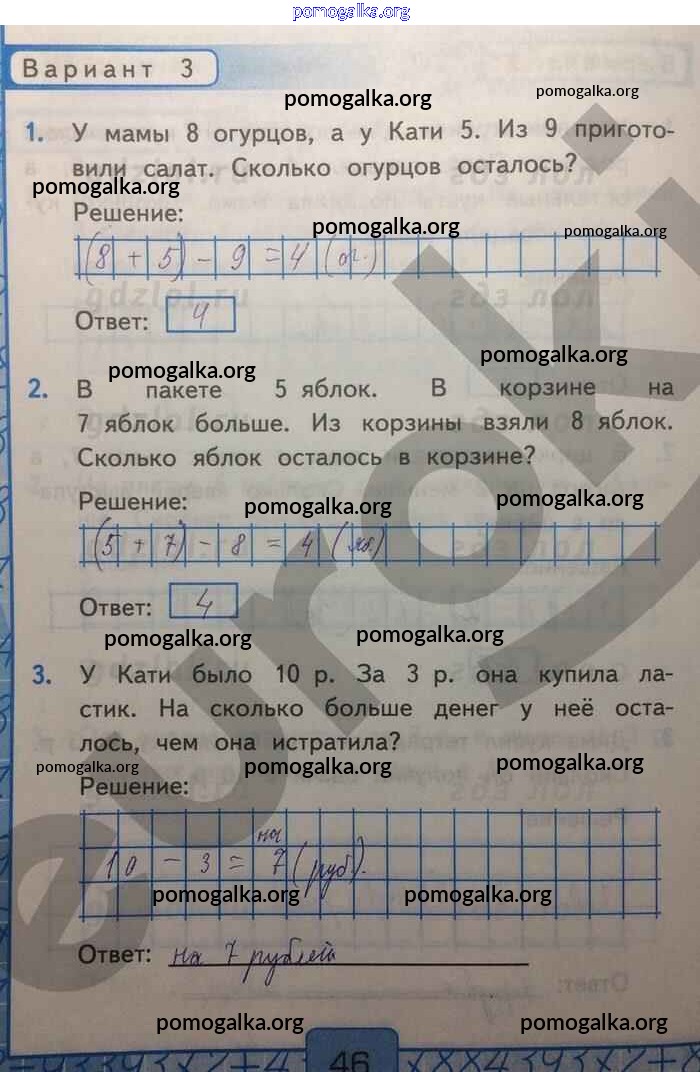 pomogalka.org
Вариант 3
pomogalka.org
pomogalka.org
1. У мамы 8 огурцов, а у Кати 5. Из 9 пригото-
вили салат. Сколько огурцов осталось?
pomogalka.org
Решение:
pomogalka.org
pomogalka.org
(8 + 5) - 9 = 4 (ог.)
Ответ: 4
pomogalka.org
pomogalka.org
2. В пакете 5 яблок. В корзине на
7 яблок больше. Из корзины взяли 8 яблок.
Сколько яблок осталось в корзине?
Решение:
pomogalka.org
pomogalka.org
(5 + 7) - 8 = 4 (яб.)
Ответ: 4
pomogalka.org
pomogalka.org
3. У Кати было 10 р. За 3 р. она купила ла-
стик. На сколько больше денег у неё оста-
лось, чем она истратила?
pomogalka.org
pomogalka.org
pomogalka.org
Решение:
на
10 - 3 = 7 (руб).
pomogalka.org
pomogalka.org
Ответ: на 7 рублей
pomogalka.org
pomogalka.org
46
euroki